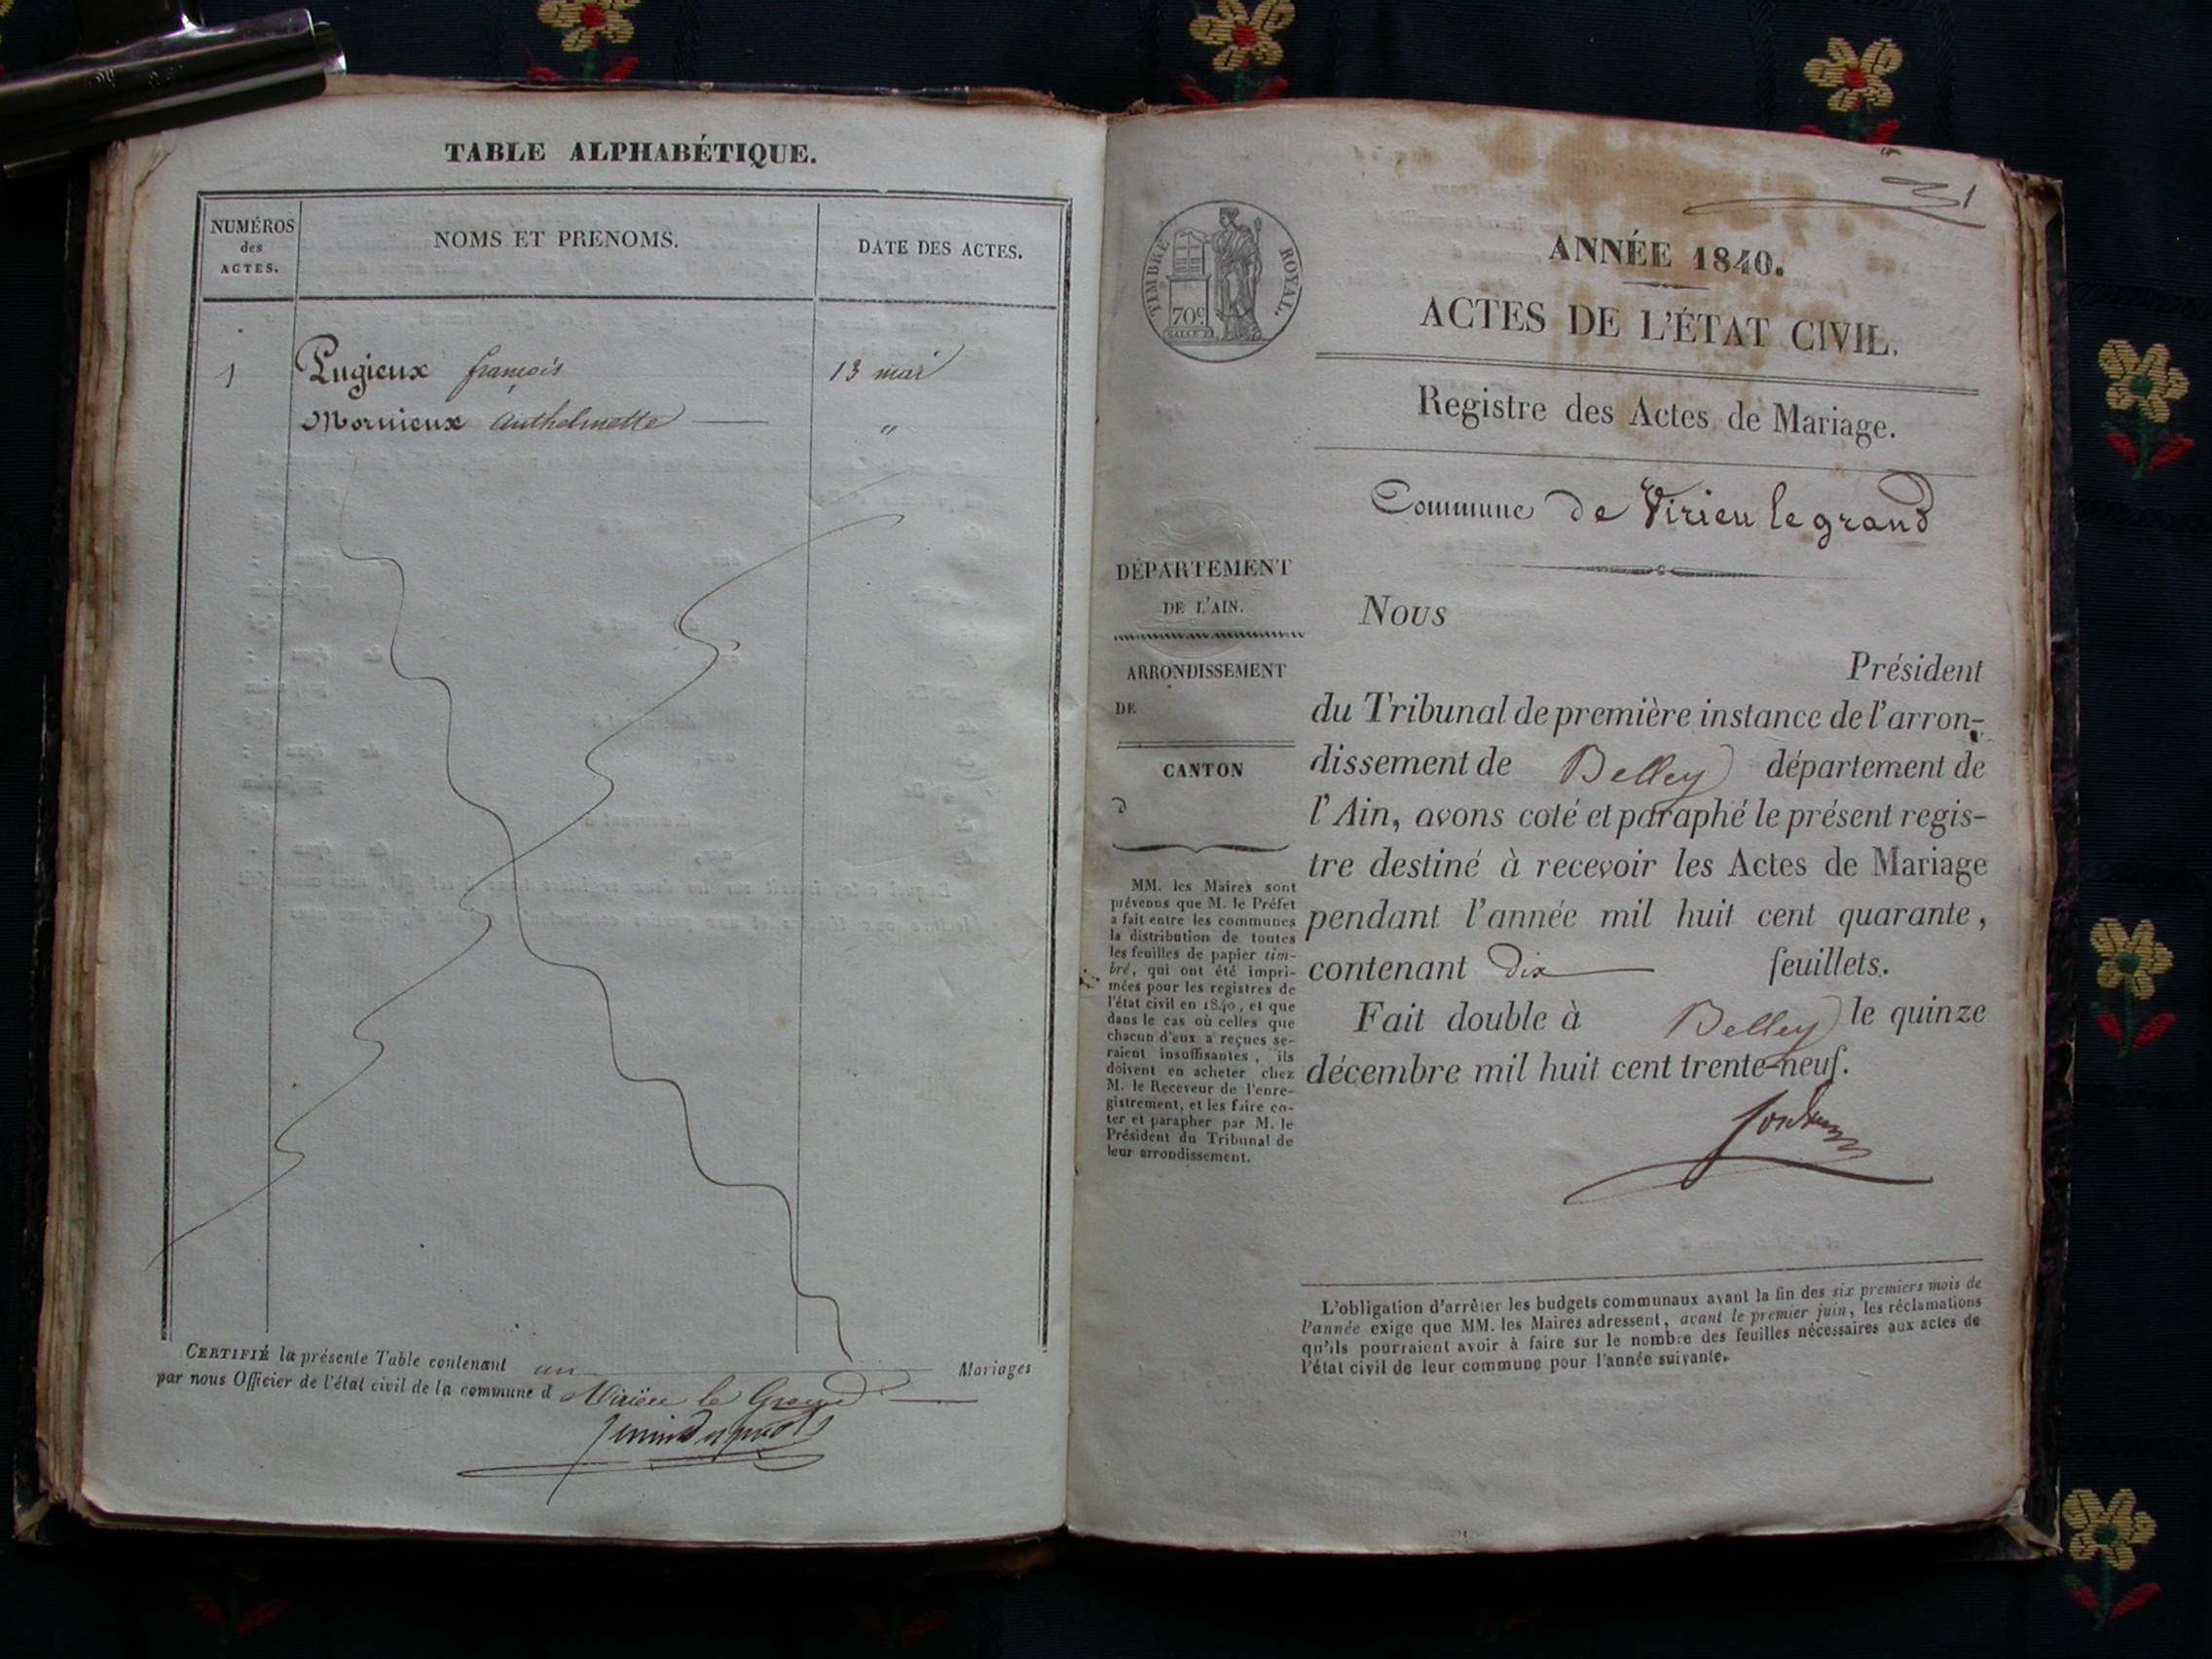 TABLE ALPHABÉTIQUE.
NUMÉROS
des
ACTES.
NOMS ET PRENOMS.
DATE DES ACTES.
1 Pugieux françois 13 mai
Mornieux Anthelmette "
CERTIFIÉ la présente Table contenant un Mariages
par nous Officier de l'état civil de la commune d Virieu le Grand
1
TIMBRE ROYAL.
70c
ANNÉE 1840.
ACTES DE L'ÉTAT CIVIL.
Registre des Actes de Mariage.
Commune de Virieu le grand
DÉPARTEMENT
DE L'AIN.
ARRONDISSEMENT
DE
CANTON
d
MM. les Maires sont
prévenus que M. le Préfet
a fait entre les communes
la distribution de toutes
les feuilles de papier tim-
bré, qui ont été impri-
mées pour les registres de
l'état civil en 1840, et que
dans le cas où celles que
chacun d'eux a reçues se-
raient insuffisantes, ils
doivent en acheter chez
M. le Receveur de l'enre-
gistrement, et les faire co-
ter et parapher par M. le
Président du Tribunal de
leur arrondissement.
Nous
Président
du Tribunal de première instance de l'arron-
dissement de Belley département de
l'Ain, avons coté et paraphé le présent regis-
tre destiné à recevoir les Actes de Mariage
pendant l'année mil huit cent quarante,
contenant dix feuillets.
Fait double à Belley le quinze
décembre mil huit cent trente-neuf.
L'obligation d'arrêter les budgets communaux avant la fin des six premiers mois de
l'année exige que MM. les Maires adressent, avant le premier juin, les réclamations
qu'ils pourraient avoir à faire sur le nombre des feuilles nécessaires aux actes de
l'état civil de leur commune pour l'année suivante.